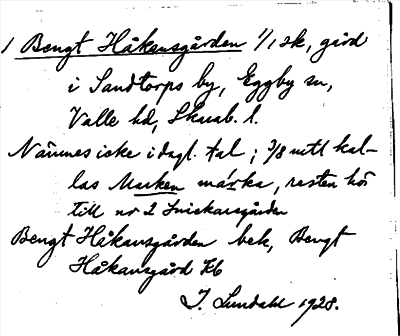 1 Bengt Håkansgården 1/1 sk, gård
i Sandtorps by, Eggby sn,
Valle hd, Skarab. l.
Nämnes icke i dagl. tal; 3/8 mtl kal-
las Marken märka, resten hör
till nr 2 Snickaregården
Bengt Håkansgården bek, Bengt
Håkansgård Kb
I. Lundahl 1928.